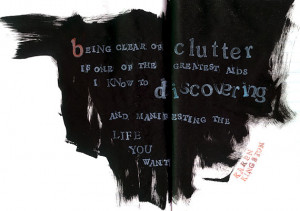 bEING CLEAR OF clutter
IS ONE OF THE GREATEST AIDS
I KNOW TO discovering
AND MANIFESTING THE
LIFE
YOU
WANT
KAREN
KINGSTON